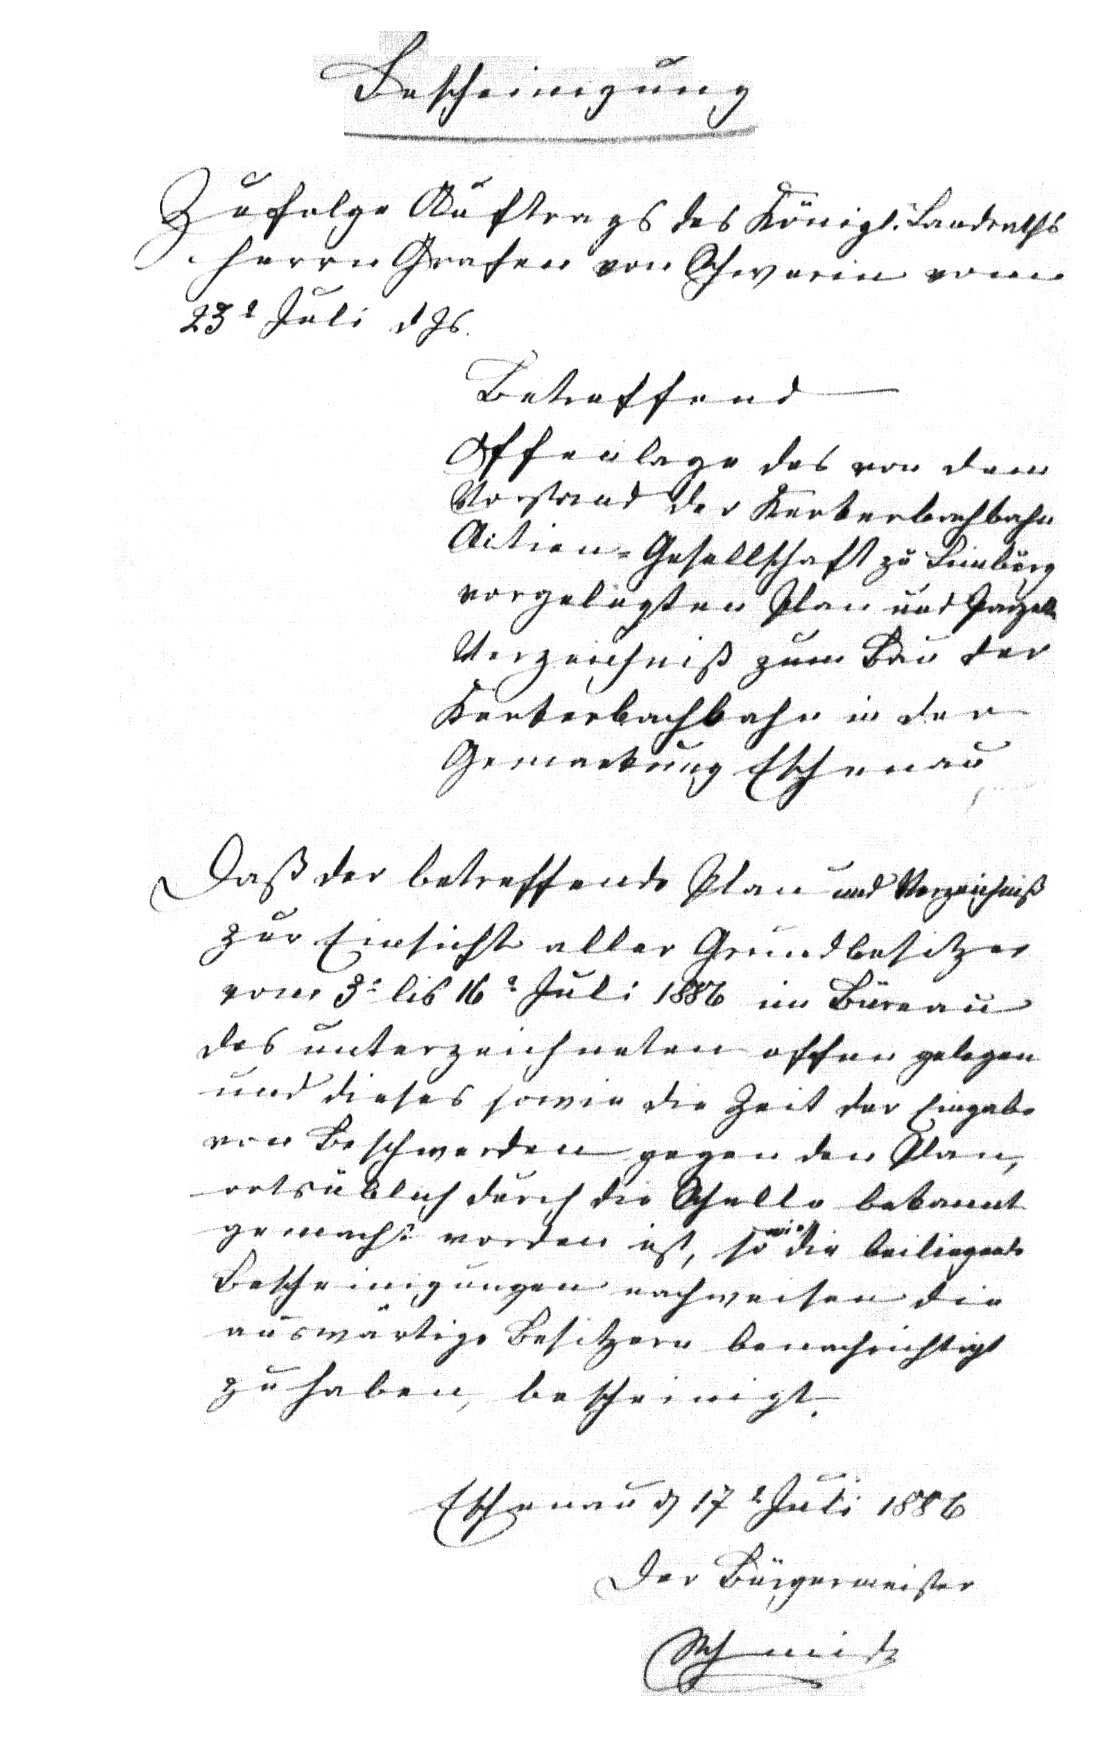 Bescheinigung
Zufolge Auftrags des Königl. Landraths
Herrn Grafen von Schwerin vom
23t Juli d Js.
Betreffend
Offenlage des von dem
Vorstand der Kerkerbachbahn
Actien-Gesellschaft zu Limburg
vorgelegten Plan und Parzell
Verzeichniß zum Bau der
Kerkerbachbahn in der
Gemarkung Eschenau
Daß der betreffende Plan und Verzeichniß
zur Einsicht aller Grundbesitzer
vom 3t bis 16t Juli 1886 im Büreau
des unterzeichneten offen gelegen
und dieses sowie die Zeit der Eingabe
von Beschwerden gegen den Plan,
ortsüblich durch die Schelle bekannt
gemacht worden ist, so wie die beiliegende
Bescheinigungen nachweisen die
auswärtige Besitzern benachrichtigt
zu haben, bescheinigt.
Eschenau d 17t Juli 1886
Der Bürgermeister
Schmidt